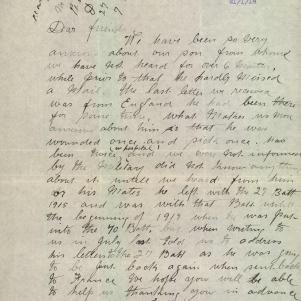 Dear friend
We have been so very
anxious about our son from whom
we have not heard for over 6
while prior to that he hardly missed
a Mail. The last letter we received
was from England he had been there
for some time, what Makes us more
anxious about him is that he was
wounded once and sick once. has
been twice in hospital and we was not informed
by the Military did not know
about it until we heard from him
or his Mates he left with the 27 Batt
1915 and was with that Batt until
the beginning of 1917 when he was put
into the 70 Batt, but when writing to
us in July last told us to address
his letters to the 27 Batt as he was going
to be put back again when sent back
to France. We hope you will be able
to help us thanking you in advance